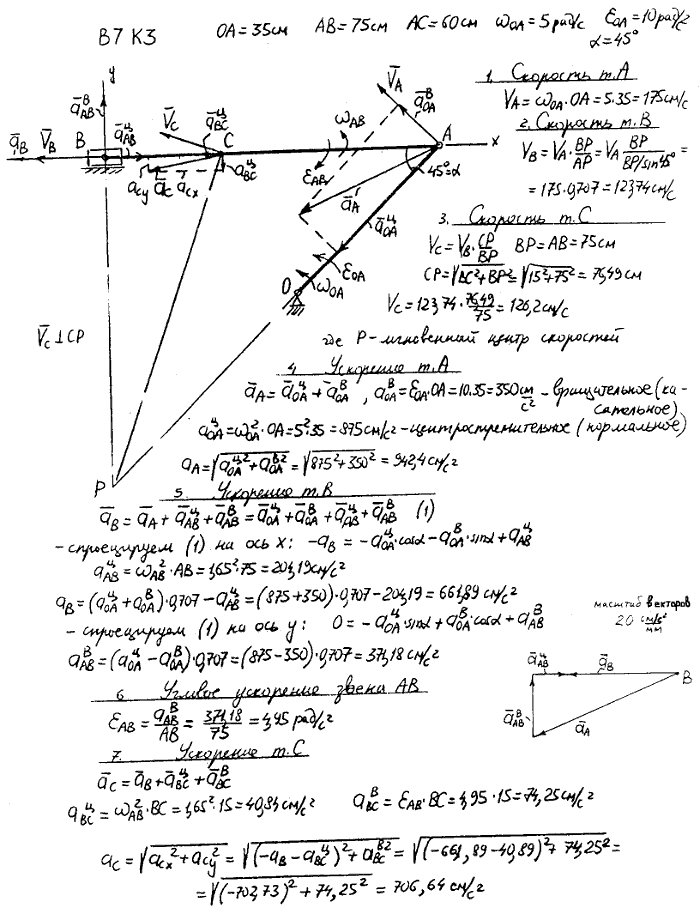 В7 К3 OA = 35см AB = 75см AC = 60см ω_OA = 5 рад/с ε_OA = 10 рад/с²
α = 45°
y
a̅ᴮ_AB
V̅_A
a̅ᴮ_OA
a̅_B V̅_B B a̅ᶭ_AB V̅_C a̅ᶭ_BC C ω_AB A x
a_Cy a̅_C a_Cx aᶭ_BC ε_AB a̅_A 45°=α
a̅ᶭ_OA
ε_OA
O ω_OA
V̅_C ⊥ CP
P
1. Скорость т.A
V_A = ω_OA · OA = 5·35 = 175 см/с
2. Скорость т.B
V_B = V_A · BP/AP = V_A BP/(BP/sin45°) =
= 175·0,707 = 123,74 см/с
3. Скорость т.C
V_C = V_B · CP/BP BP = AB = 75 см
CP = √(BC² + BP²) = √(15² + 75²) = 76,49 см
V_C = 123,74 · 76,49/75 = 126,2 см/с
где P – мгновенный центр скоростей
4 Ускорение т.A
a̅_A = a̅ᶭ_OA + a̅ᴮ_OA , aᴮ_OA = ε_OA · OA = 10·35 = 350 см/с² – вращительное (ка-
сательное)
aᶭ_OA = ω²_OA · OA = 5²·35 = 875 см/с² – центростремительное (нормальное)
a_A = √(aᶭ²_OA + aᴮ²_OA) = √(875² + 350²) = 942,4 см/с²
5. Ускорение т.B
a̅_B = a̅_A + a̅ᶭ_AB + a̅ᴮ_AB = a̅ᶭ_OA + a̅ᴮ_OA + a̅ᶭ_AB + a̅ᴮ_AB (1)
– спроецируем (1) на ось x: −a_B = −aᶭ_OA · cosα − aᴮ_OA · sinα + aᶭ_AB
aᶭ_AB = ω²_AB · AB = 1,65²·75 = 204,19 см/с²
a_B = (aᶭ_OA + aᴮ_OA)·0,707 − aᶭ_AB = (875 + 350)·0,707 − 204,19 = 661,89 см/с²
– спроецируем (1) на ось y: 0 = −aᶭ_OA · sinα + aᴮ_OA · cosα + aᴮ_AB
aᴮ_AB = (aᶭ_OA − aᴮ_OA)·0,707 = (875 − 350)·0,707 = 371,18 см/с²
масштаб векторов
20 см/с²/мм
a̅ᶭ_AB a̅_B B
a̅ᴮ_AB a̅_A
6 Угловое ускорение звена AB
ε_AB = aᴮ_AB/AB = 371,18/75 = 4,95 рад/с²
7. Ускорение т.C
a̅_C = a̅_B + a̅ᶭ_BC + a̅ᴮ_BC
aᶭ_BC = ω²_AB · BC = 1,65²·15 = 40,84 см/с² aᴮ_BC = ε_AB · BC = 4,95·15 = 74,25 см/с²
a_C = √(a_Cx² + a_Cy²) = √((−a_B − aᶭ_BC)² + aᴮ²_BC) = √((−661,89 − 40,89)² + 74,25²) =
= √((−702,73)² + 74,25²) = 706,64 см/с²